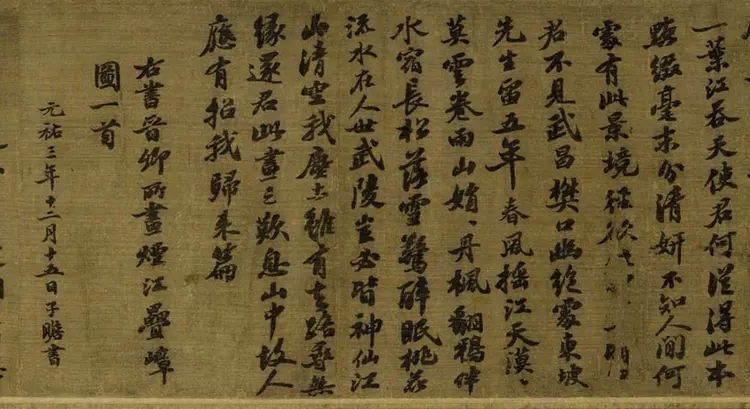 一葉江吞天使君何從得此本
點綴毫末分清妍不知人間何
處有此景境徑欲
君不見武昌樊口幽絕處東坡
先生留五年春風搖江天漠〻
莫雲卷雨山娟〻丹楓翻鴉伴
水宿長松落雪驚醉眠桃花
流水在人世武陵豈必皆神仙江
山清空我塵土雖有去路尋無
緣還君此畫三歎息山中故人
應有招我歸來篇
右書晉卿所畫煙江疊嶂
圖一首
元祐三年十二月十五日子瞻書